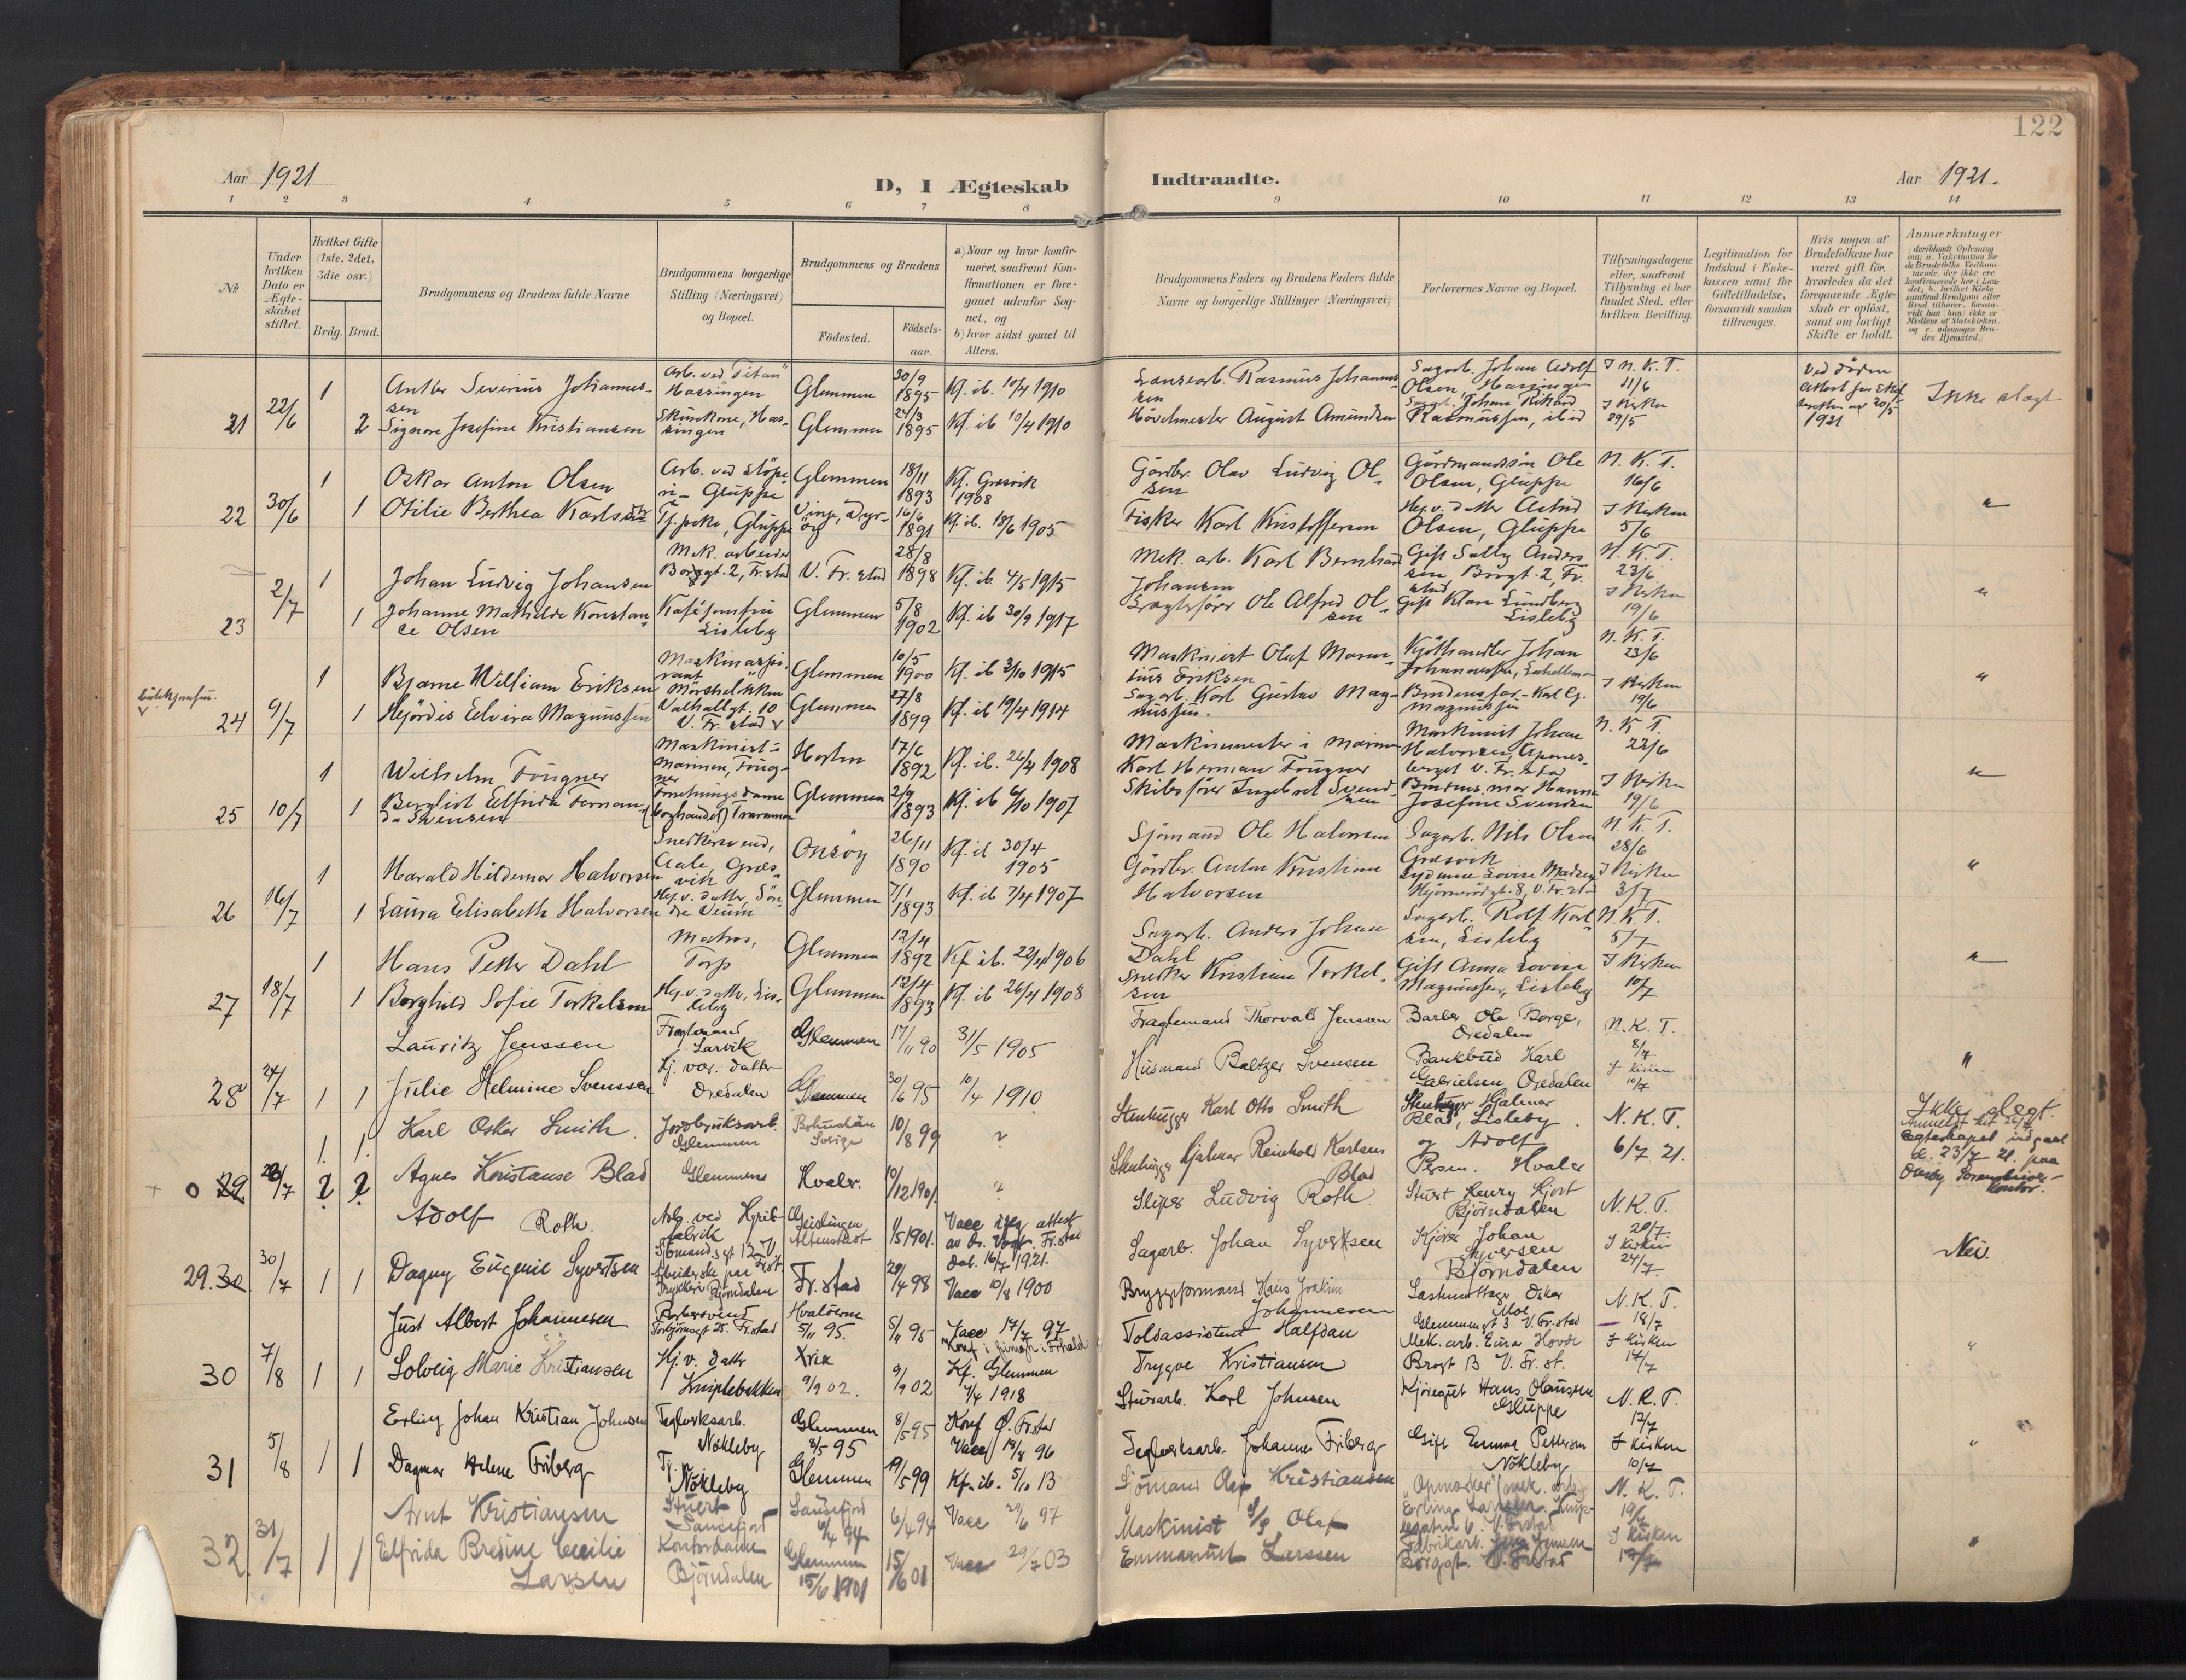 122
Aar 1921
D, I Ægteskab
Indtraadte.
Aar 1921.
1 2 3 4 5 6 7 8 9 10 11 12 13 14
No
Under hvilken Dato er Ægteskabet stiftet.
Hvilket Gifte (1ste, 2det, 3die osv.)
Brdg. Brud.
Brudgommens og Brudens fulde Navne
Brudgommens borgerlige Stilling (Næringsvei) og Bopæl.
Brudgommens og Brudens
Fødested.
Fødsels-aar.
a) Naar og hvor konfirmeret, saafremt Konfirmationen er foregaaet udenfor Sognet, og
b) hvor sidst gaaet til Alters.
Brudgommens Faders og Brudens Faders fulde Navne og borgerlige Stillinger (Næringsvei)
Forlovernes Navne og Bopæl.
Tillysningsdagene eller, saafremt Tillysning ei har fundet Sted, efter hvilken Bevilling.
Legitimation for Indskud i Enkekassen samt for Giftetilladelse, forsaavidt saadan tiltrænges.
Hvis nogen af Brudefolkene har været gift før, hvorledes da det foregaaende Ægteskab er opløst, samt om lovligt Skifte er holdt.
Anmerkninger
21 22/6
1 Anther Severius Johannessen Arb. ved "Titan" Hassingen Glemmen 30/9 1895 Kf. ib. 10/4 1910 Rasmus Johannessen Sagarb. Johan Adolf Olsen, Hassingen I N. K. T. 11/6
2 Signora Josefine Kristiansen Glemmen 24/3 1895 Kf. ib 10/4 1910 Hövelmester August Amundsen Sagarb. Johan Rikard Rasmussen, ibid I Kirken 29/5
Ved döden
1921
Ikke slegt
22 30/6
1 Oskar Anton Olsen Arb. ved stöperi Gluppe Glemmen 18/11 1893 Kf. Gresvik 1908 Gårdbr. Olav Ludvig Olsen Gårdmandssön Ole Olsen, Gluppe N. K. T. 16/6 "
1 Otilie Berthea Karlsen Tj.pike, Gluppe 16/6 1891 Kf. ib. 18/6 1905 Fisker Karl Kristoffersen Hj. v. datter Astrid Olsen, Gluppe I Kirken 5/6
23 2/7
1 Johan Ludvig Johansen Mek. arbeider Borggt. 2, Fr.stad V. Fr. stad 28/8 1898 Kf. ib 4/5 1915 Mek. arb. Karl Bernhard Johansen Gift Sally Andersen, Borggt. 2, Fr. stad N. K. T. 23/6 "
1 Johanne Mathilde Konstance Olsen Kaféjomfru Lisleby Glemmen 5/8 1902 Kf. ib 30/9 1917 Fragteförer Ole Alfred Olsen Gift Klara Lundberg Lisleby I Kirken 19/6
24 9/7
1 Bjarne William Eriksen Maskinaspirant Glemmen 10/5 1900 Kf. ib 3/10 1915 Maskinist Olaf Marinius Eriksen Kjöthandler Johan Johannessen N. K. T. 23/6 "
1 Hejördis Elvira Magnussen Valhallgt. 10 V. Fr. stad Glemmen 27/8 1899 Kf. ib 19/4 1914 Sagarb. Karl Gustav Magnussen. Brudens far - Karl G. Magnussen I Kirken 19/6
25 10/7
1 Wilhelm Fougner Maskinist i Marinen, Fougner Horten 17/6 1892 Kf. ib. 26/4 1908 Maskinmester i Marinen Karl Herman Fougner Maskinist Johan Halvorsen, V. Fr. stad N. K. T. 22/6 "
1 Bergliot Elfrida Fernanda Svensen Forretningsdame (boghandel) Traraveien Glemmen 2/9 1893 Kf. ib 6/10 1907 Skibsförer Ingebret Svendsen Brudens mor Hanna Josefine Svendsen I Kirken 19/6
26 16/7
1 Harald Hildemar Halvorsen Snedkersvend, Aale, Græsvik Onsöy 26/11 1890 Kf. ib 30/4 1905 Sjömand Ole Halvorsen Sagarb. Nils Olsen Græsvik N. K. T. 28/6 "
1 Laura Elisabeth Halvorsen Hj. v. datter, Söndre Veum Glemmen 7/1 1893 Kf. ib 7/4 1907 Gårdbr. Anton Kristian Halvorsen Lovise Madsen I Kirken 3/7
27 18/7
1 Hans Petter Dahl Matros, Torp Glemmen 12/4 1892 Kf. ib. 22/4 1906 Sagarb. Anders Johan Dahl Sagarb. Rolf Karlsen, Lisleby N. K. T. 5/7 "
1 Borghild Sofie Torkelsen Hj. v. datter, Lisleby Glemmen 12/4 1893 Kf. ib 26/4 1908 Snedker Kristian Torkelsen Gift Anna Lovise Magnussen, Lisleby I Kirken 10/7
28 24/7
1 Lauritz Jenssen Fragtemand Larvik Glemmen 17/11 90 31/5 1905 Fragtemand Thorvald Jenssen Barber Ole Borge, Oredalen N. K. T. 8/7 "
1 Julie Helmine Svenssen Hj. vær. datter Oredalen Glemmen 30/6 95 10/4 1910 Husmand Baltzer Svensen Bankbud Karl Gabrielsen Oredalen I Kirken 10/7
+ 0 29
1. 1. Karl Oskar Smith. Jordbruksarb. Glemmen Bohuslän Sverige 10/8 99 ? Stenhugger Karl Otto Smith Stenhugger Hjalmar Blad, Lisleby. N. K. T. 6/7 21.
? ? Agnes Konstanse Blad Glemmen Hvaler. 10/12 1901 ? Stenhugger Hjalmar Reinhold Karlsen Blad og Adolf Persen. Hvaler
Ikke slegt.
Ægteskapet indgaat d. 23/7 - 21. paa Onsöy Sorenskriverkontor.
29. 30 30/7
1 Adolf Roth Arb. ved Hyrebfabrik Geislingen Altenstadt 1/5 1901. Vacc iflg attest av dr. Vogt. Fr.stad Dat. 16/7 1921. Sliper Ludvig Roth Stuert Henry Hjort Björndalen N. K. T. 20/7
1 Dagny Eugenie Syvertsen Björndalen Fr. stad 29/4 98 Vacc 10/8 1900 Sagarb. Johan Syvertsen Kjörer Johan Syversen Björndalen I Kirken 24/7. Nei.
30 7/8
1 Just Albert Johannesen Barbersvend Torbjörnsgt 25. Fr.stad Hvalöerne 5/11 95. 5/11 95 Vacc 17/7 97 Bryggeformand Hans Joakim Johannesen Oskar Moe Glemmengt 3 V. Fr. stad N. K. T. 18/7
1 Solveig Marie Kristiansen Hj. v. datter Kniplebakken 9/9 02. 9/9 02 Kf. Glemmen 7/4 1918 Toldassistent Halfdan Trygve Kristiansen Mek. arb. Einar Hovde V. Fr. st. I Kirken 17/7 "
31 5/8
1 Erling Johan Kristian Johnsen Teglverksarb. Nökleby Glemmen 8/5 95 8/5 95 Konf Ö. Fr.stad Vacc 19/8 96 Stuerarb. Karl Johnsen Kjöregut Hans Olaussen Gluppe N. K. T. 12/7
1 Dagmar Helene Friberg Tj. Nökleby Glemmen 19/5 99 Kf. ib. 5/10 13 Teglverksarb. Johannes Friberg Gift Emma Pettersen Nökleby I Kirken 10/7 "
32. 31/7
1 Arnt Kristiansen Stuert Sandefjord Sandefjord 6/4 94 6/4 94 Vacc 29/6 97 Sjömand Olaf Kristiansen "Opmerker" (mek. arb.) Erling Larsen N. K. T. 19/7
1 Elfrida Bredine Cecilie Larsen Kontordame Björndalen Glemmen 15/6 1901 15/6 01 Vacc 29/7 03 Maskinist Olaf Emmanuel Larssen Fabrikarb. Jens Jensen Borggt. V. Frstad I Kirken 17/7 "